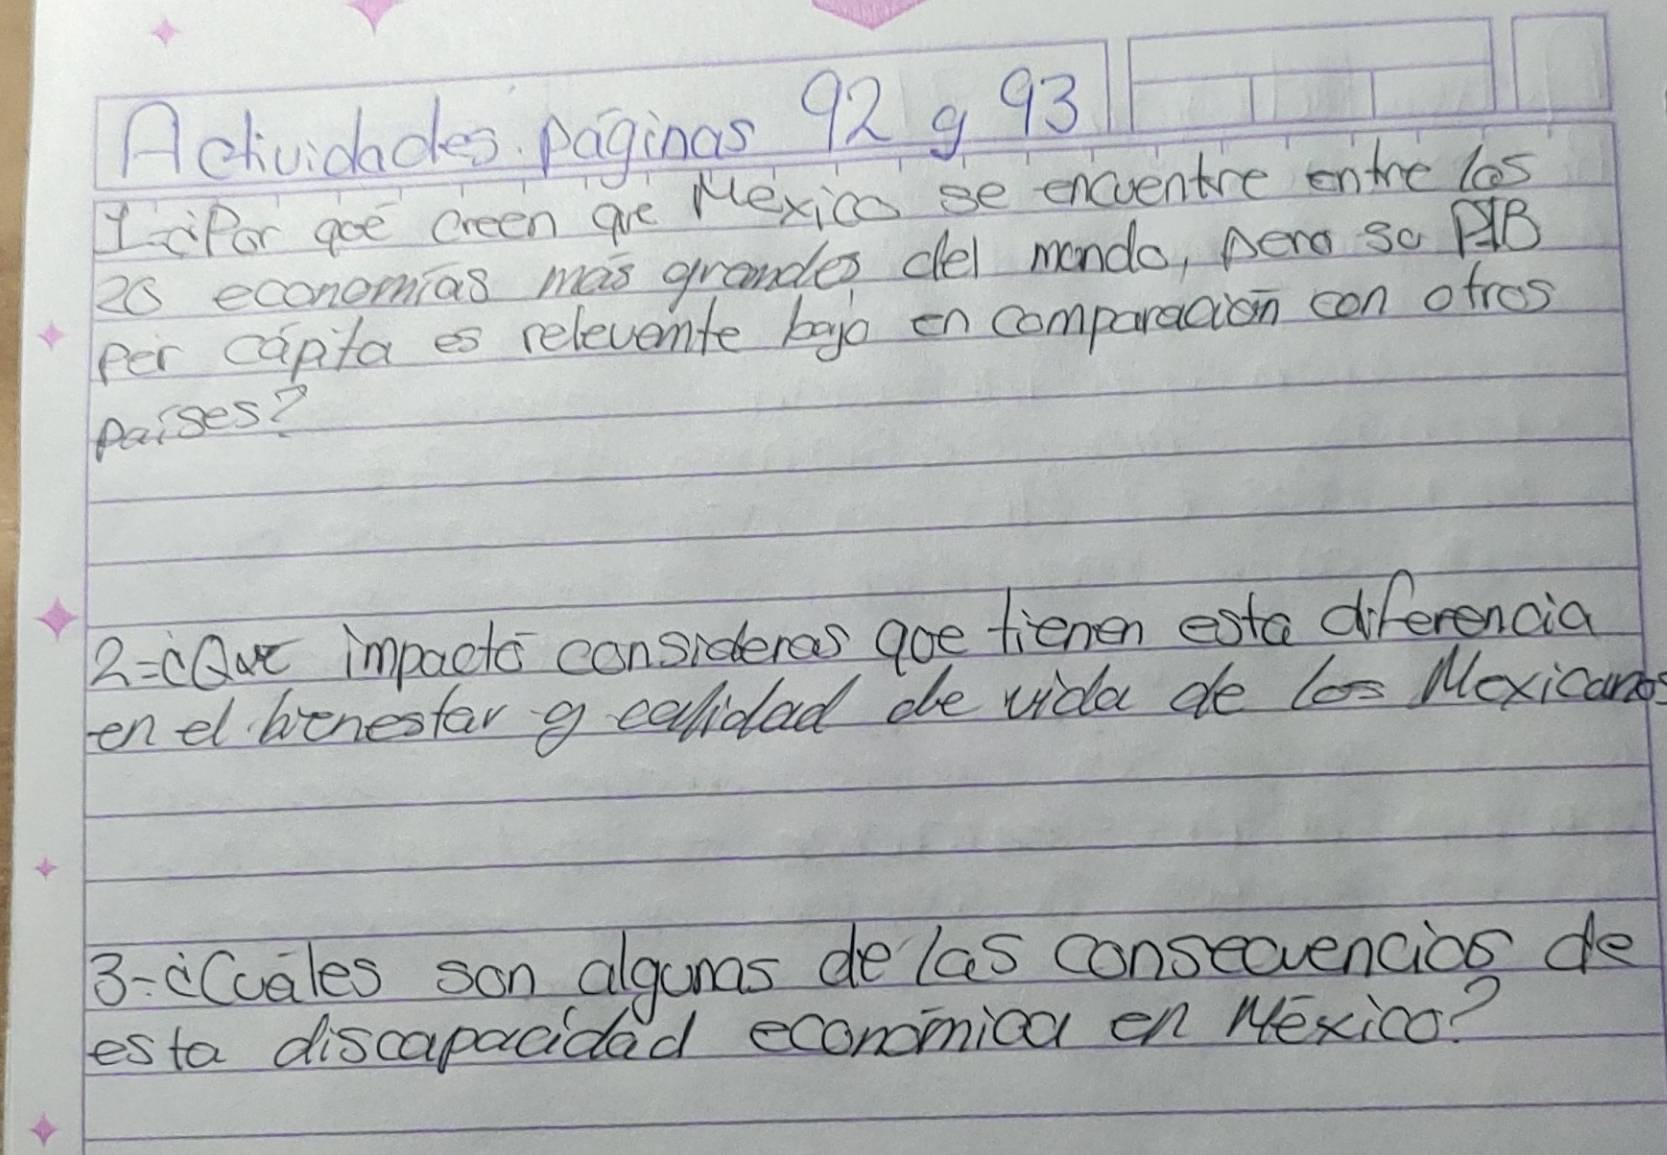 Actividades páginas 92 y 93
1-¿Por qué creen que México se encuentre entre los
20 economías más grandes del mundo, pero su PIB
per cápita es relevemte bajo en comparación con otros
países?
2-¿Que impacto consideras que tienen esta diferencia
en el bienestar y calidad de vida de los Mexicanos
3-¿Cuáles son algunas de las consecuencias de
esta discapacidad económica en México?